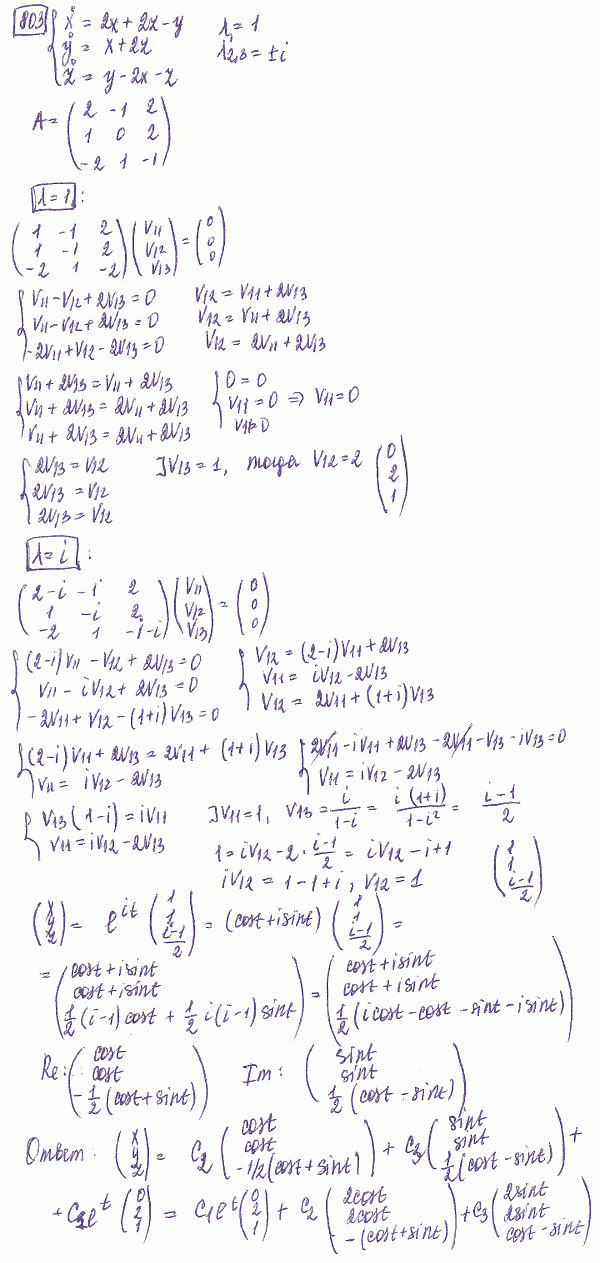 803 { ẋ = 2x + 2z - y    λ₁ = 1
ẏ = x + 2z    λ₂,₃ = ±i
ż = y - 2x - z
A = ( 2 -1 2
1 0 2
-2 1 -1 )
λ=1 :
( 1 -1 2 ; 1 -1 2 ; -2 1 -2 ) ( V11 ; V12 ; V13 ) = ( 0 ; 0 ; 0 )
{ V11 - V12 + 2V13 = 0    V12 = V11 + 2V13
V11 - V12 + 2V13 = 0    V12 = V11 + 2V13
-2V11 + V12 - 2V13 = 0    V12 = 2V11 + 2V13
{ V11 + 2V13 = V11 + 2V13    { 0 = 0
V11 + 2V13 = 2V11 + 2V13    V11 = 0 ⇒ V11 = 0
V11 + 2V13 = 2V11 + 2V13    V11=0
{ 2V13 = V12    ]V13 = 1, тогда V12 = 2 ( 0 ; 2 ; 1 )
2V13 = V12
2V13 = V12
λ=i :
( 2-i -1 2 ; 1 -i 2 ; -2 1 -1-i ) ( V11 ; V12 ; V13 ) = ( 0 ; 0 ; 0 )
{ (2-i)V11 - V12 + 2V13 = 0    { V12 = (2-i)V11 + 2V13
V11 - iV12 + 2V13 = 0    V11 = iV12 - 2V13
-2V11 + V12 - (1+i)V13 = 0    V12 = 2V11 + (1+i)V13
{ (2-i)V11 + 2V13 = 2V11 + (1+i)V13    { 2V11 - iV11 + 2V13 - 2V11 - V13 - iV13 = 0
V11 = iV12 - 2V13    V11 = iV12 - 2V13
{ V13(1-i) = iV11    ]V11 = 1, V13 = i/(1-i) = i(1+i)/(1-i²) = (i-1)/2
V11 = iV12 - 2V13    1 = iV12 - 2·(i-1)/2 = iV12 - i + 1    ( 1 ; 1 ; (i-1)/2 )
iV12 = 1-1+i, V12 = 1
( x ; y ; z ) = e^{it} ( 1 ; 1 ; (i-1)/2 ) = (cost + isint) ( 1 ; 1 ; (i-1)/2 ) =
= ( cost + isint ; cost + isint ; 1/2(i-1)cost + 1/2 i(i-1)sint ) = ( cost + isint ; cost + isint ; 1/2(icost - cost - sint - isint) )
Re: ( cost ; cost ; -1/2(cost + sint) )    Im: ( sint ; sint ; 1/2(cost - sint) )
Ответ: ( x ; y ; z ) = C₂ ( cost ; cost ; -1/2(cost + sint) ) + C₃ ( sint ; sint ; 1/2(cost - sint) ) +
+ C₁e^t ( 0 ; 2 ; 1 ) = C₁e^t ( 0 ; 2 ; 1 ) + C₂ ( 2cost ; 2cost ; -(cost + sint) ) + C₃ ( 2sint ; 2sint ; cost - sint )